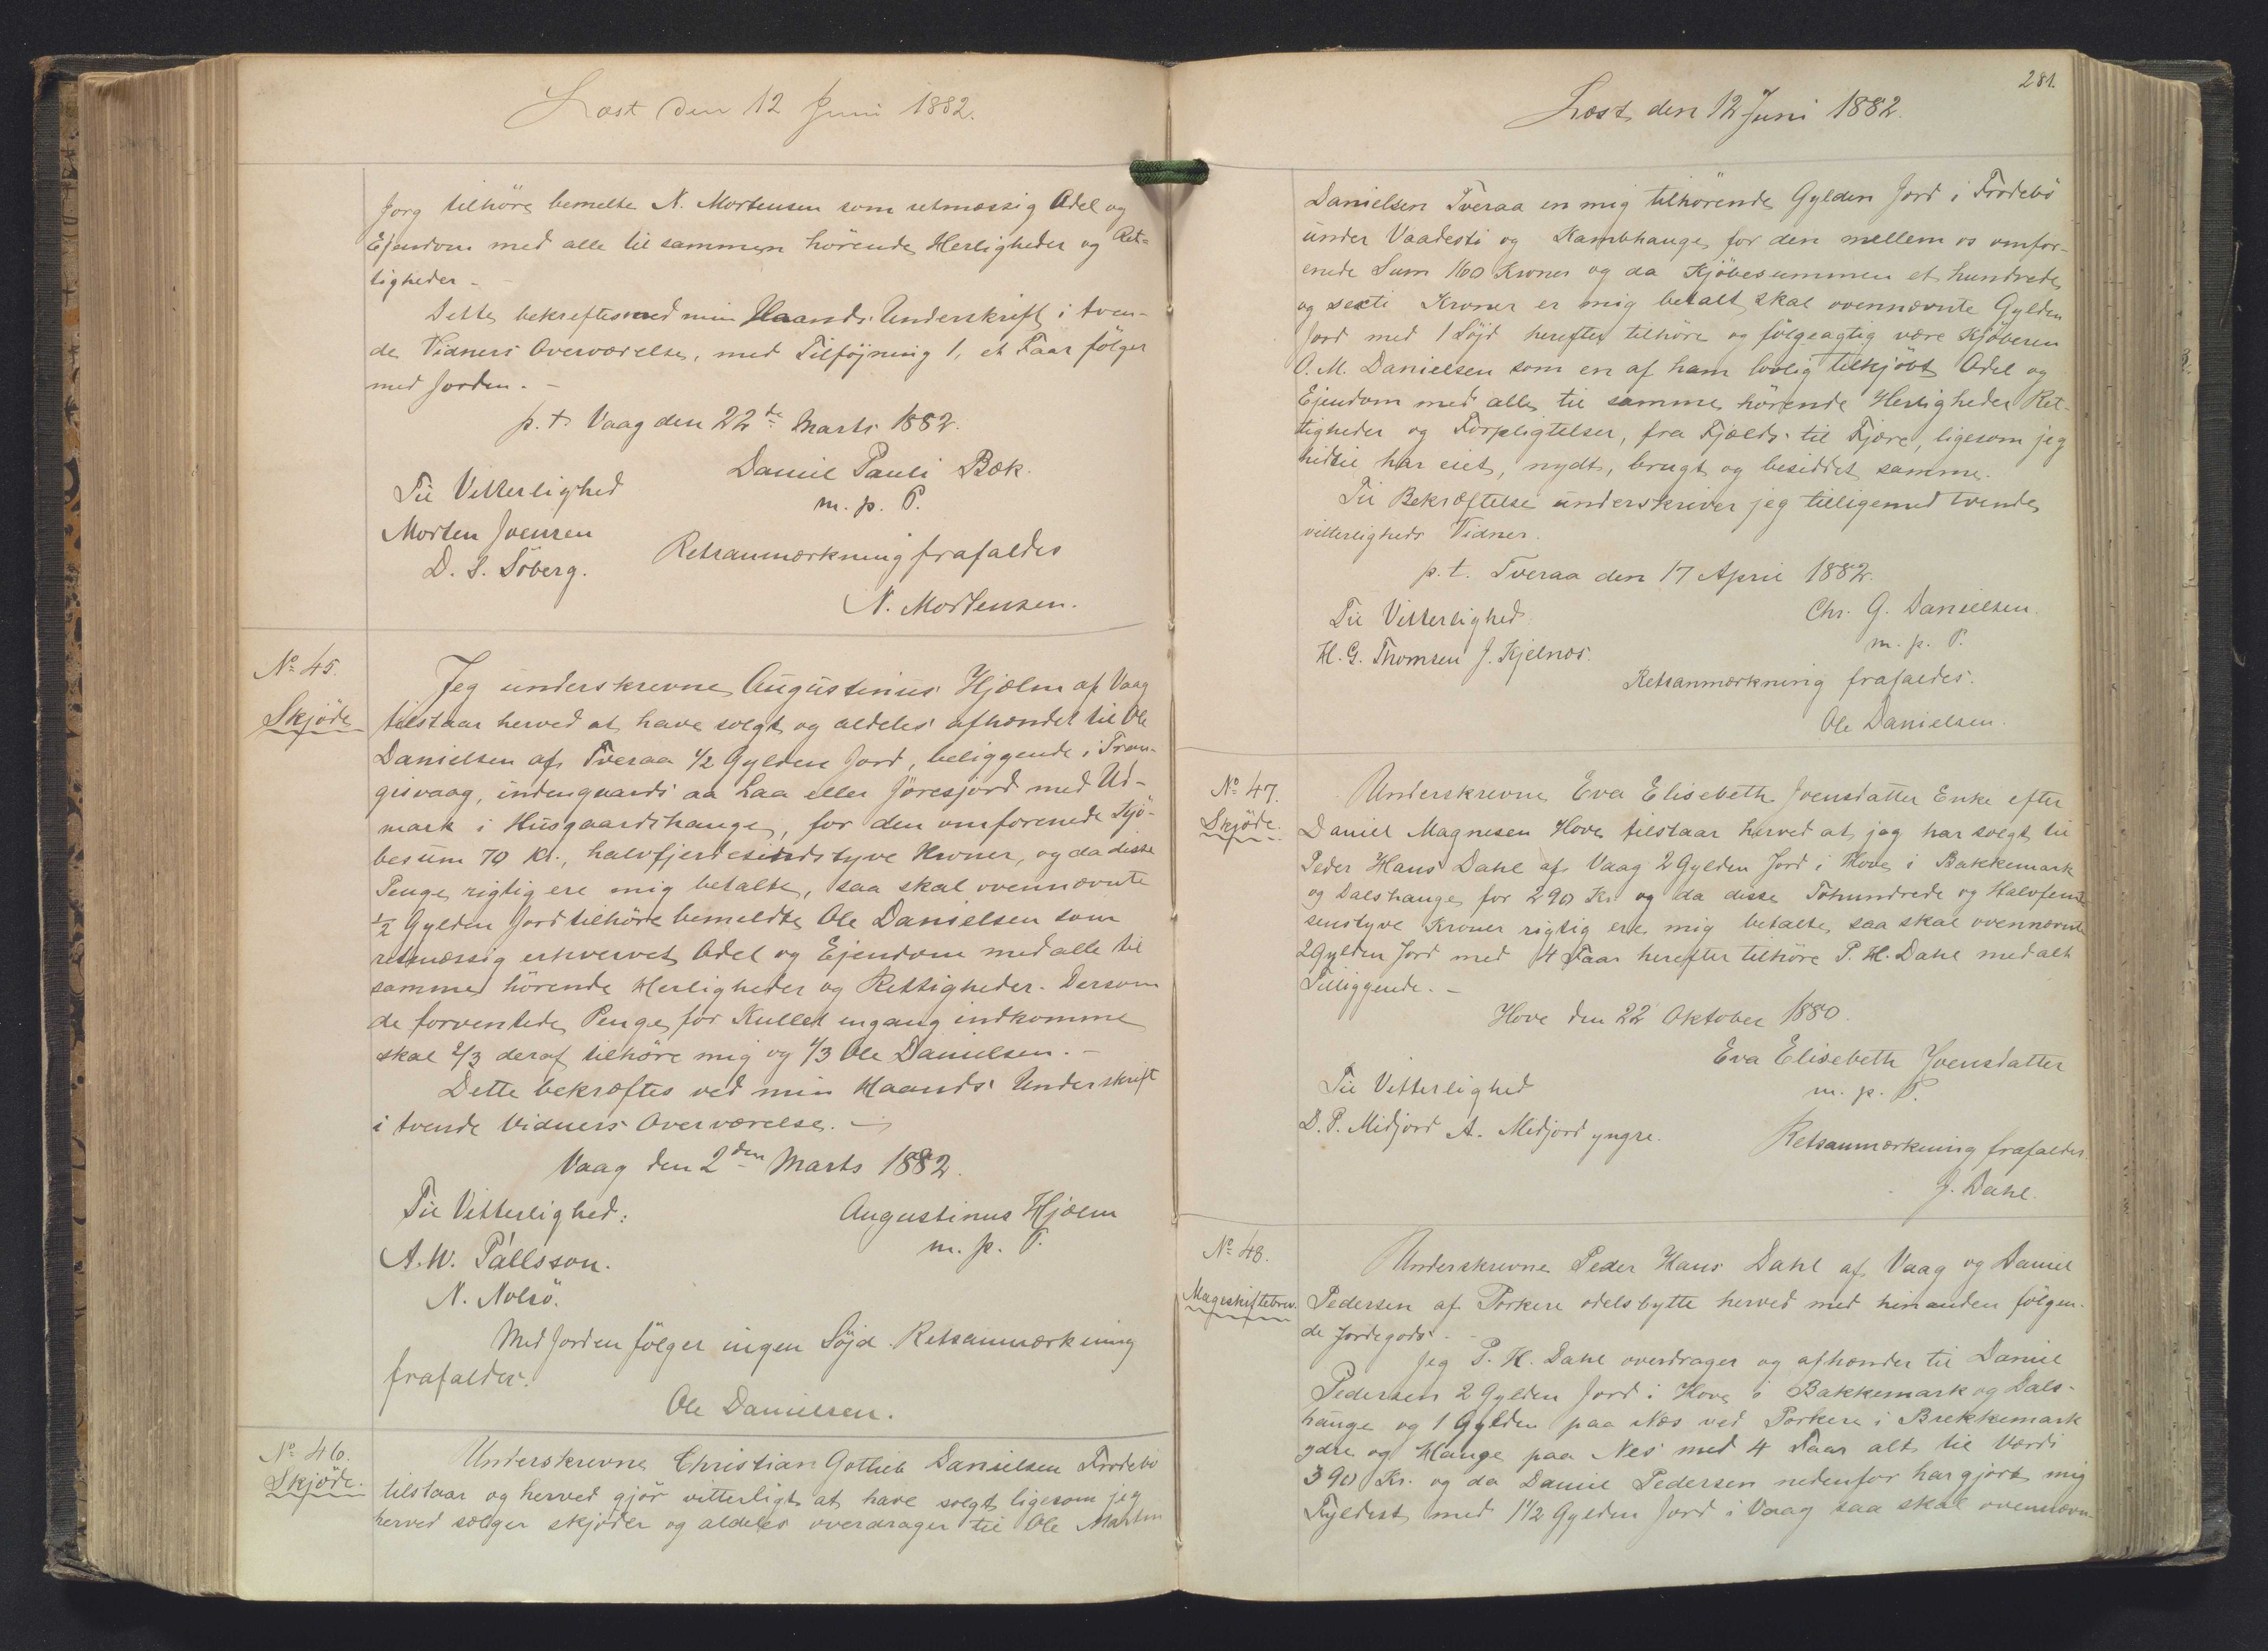 Læst den 12 Juni 1882.
Jorg tilhöre bemelte N. Mortensen som retmæssig Odel og
Ejendom med alle til sammen hörende Herligheder og Ret-
ligheder -
Dette bekreftes med min Haands Underskrift i tven-
de Vidners Overværelse, med Tilföjning 1, et Faar fölger
med Jorden. -
p. t. Vaag den 22de Marts 1882.
Daniel Pauli Bæk.
m. p. P.
Til Vitterlighed
Morten Joensen
D. J. Söberg.
Retsanmærkning frafaldes
N. Mortensen.
No 45.
Skjöde
Jeg underskrevne Augustinus Hjælm af Vaag
tilstaar herved at have solgt og aldeles afhændet til Ole
Danielsen af Tveraa 1/2 Gylden Jord, beliggende i Tran-
gisvaag, indengaards aa Laa eller Jöresjord med Ud-
mark i Husgaardshauge, for den omforenede Kjö-
besum 70 Kr., halvfjerdesindstyve Kroner, og da disse
Penge rigtig ere mig betalte, saa skal ovennævnte
1/2 Gylden Jord tilhöre bemeldte Ole Danielsen som
retmæssig erhvervet Odel og Ejendom med alle til
samme hörende Herligheder og Rettigheder. Dersom
de forventede Penge for Kullet engang indkomme
skal 2/3 deraf tilhöre mig og 1/3 Ole Danielsen. -
Dette bekræftes ved min Haands Underskrift
i tvende Vidners Overværelse. -
Vaag den 2den Marts 1882.
Til Vitterlighed:
Augustinus Hjælm
m. p. P.
A. W. Pállsson.
N. Nolsö.
Med Jorden fölger ingen Söjd. Retsanmærkning
frafaldes.
Ole Danielsen.
No 46.
Skjöde.
Underskrevne Christian Gotlieb Danielsen Frodebö
tilstaar og herved gjör vitterligt at have solgt ligesom jeg
herved sælger skjöder og aldeles overdrager til Ole Martin
281.
Læst den 12 Juni 1882.
Danielsen Tveraa en mig tilhörende Gylden Jord i Frodebö
under Vaadesti og Kambhauge for den mellem os omfor-
enede Sum 160 Kroner og da Kjöbesummen et hundrede
og sexti Kroner er mig betalt skal ovennævnte Gylden
Jord med 1 Söjd herefter tilhöre og fölgeagtig være Kjöberen
O. M. Danielsen som en af ham lovlig tilkjöbt Odel og
Ejendom med alle til samme hörende Herligheder Ret-
tigheder og Forpligtelser, fra Fjælds til Fjære, ligesom jeg
hidtil har eiet, nydt, brugt og besiddet samme.
Til Bekræftelse underskriver jeg tilligemed tvende
vitterligheds Vidner.
p. t. Tveraa den 17 April 1882.
Til Vitterlighed
Chr. G. Danielsen.
m. p. P.
H. G. Thomsen J. Kjelnæs.
Retsanmærkning frafaldes.
Ole Danielsen.
No 47.
Skjöde.
Underskrevne Eva Elisebeth Joensdatter Enke efter
Daniel Magnesen Hove tilstaar herved at jeg har solgt til
Peder Hans Dahl af Vaag 2 Gylden Jord i Hove i Bakkemark
og Dalshauge for 290 Kr. og da disse Tohundrede og Halvfem-
senstyve Kroner rigtig ere mig betalte, saa skal ovennævnte
2 Gylden Jord med 4 Faar herefter tilhöre P. H. Dahl med alt
Tilliggende. -
Hove den 22 Oktober 1880.
Eva Elisebeth Joensdatter
m. p. P.
Til Vitterlighed
D. P. Midjord A. Midjord yngre.
Retsanmærkning frafaldes.
J. Dahl.
No 48.
Mageskiftebrev.
Underskrevne Peder Hans Dahl af Vaag og Daniel
Pedersen af Porkere odelsbytte herved med hinanden fölgen-
de Jordegods. -
Jeg P. H. Dahl overdrager og afhænder til Daniel
Pedersen 2 Gylden Jord i Hove i Bakkemark og Dals-
hauge og 1 Gylden paa Næs ved Porkere i Brekkemark
ydre og Hauge paa Nes med 4 Faar alt til Værdi
390 Kr. og da Daniel Pedersen nedenfor har gjort mig
Fyldest med 1 1/2 Gylden Jord i Vaag saa skal ovennævn-